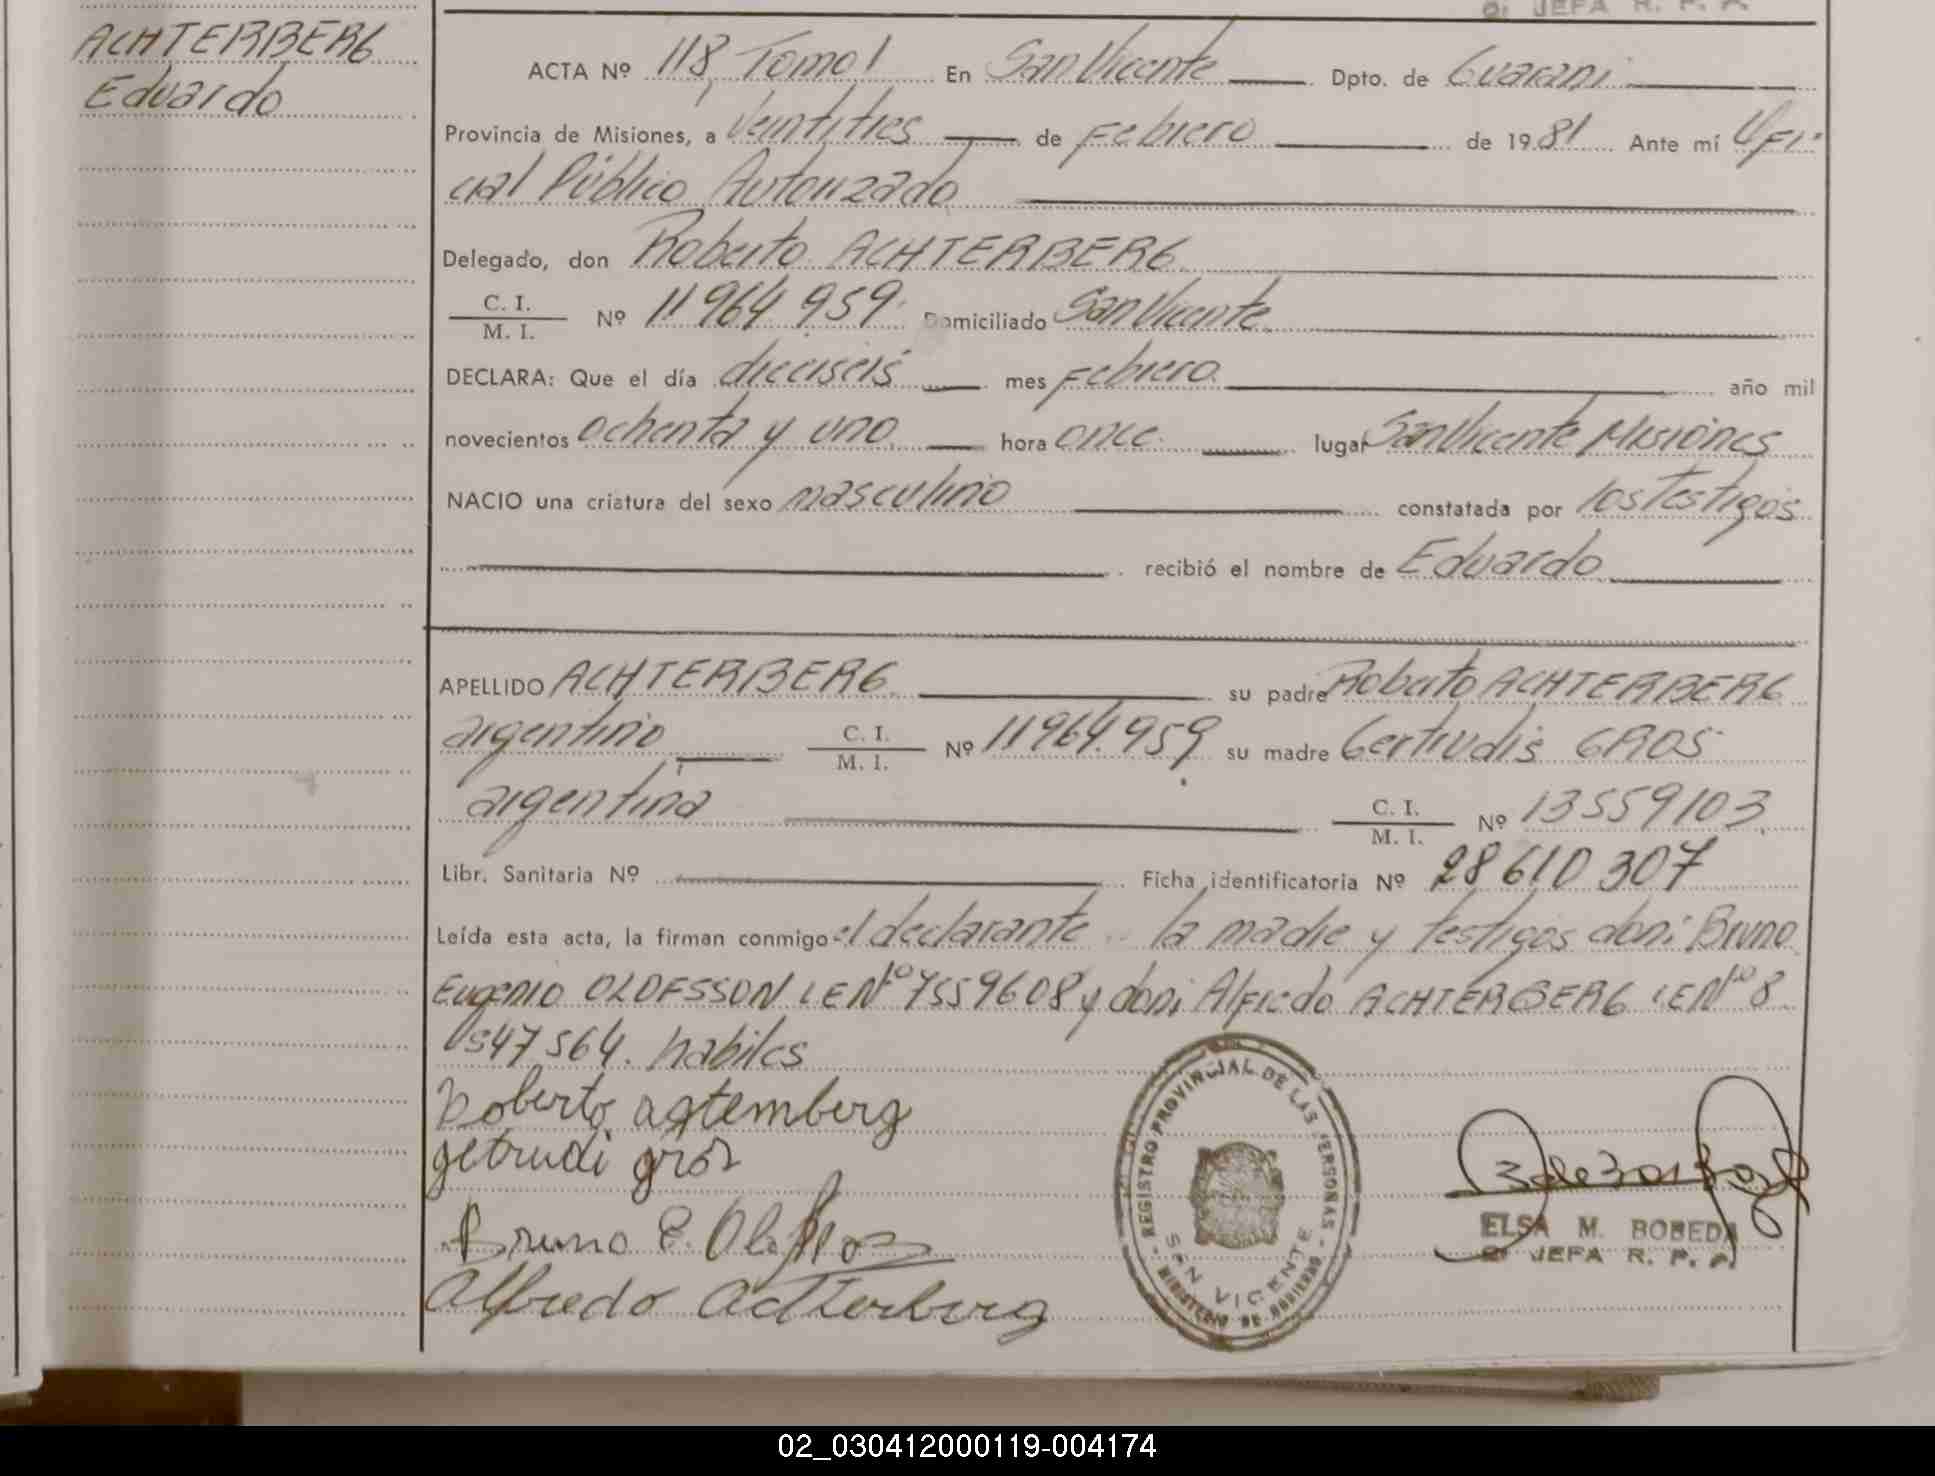 ACHTERBERG
Eduardo
JEFA R. P. P.
ACTA Nº 118, Tomo I En San Vicente Dpto. de Guarani
Provincia de Misiones, a Veintitres de Febrero de 1981 Ante mí Ofi-
cial Público Autorizado
Delegado, don Roberto ACHTERBERG
C. I.
M. I. Nº 11964959 Domiciliado San Vicente
DECLARA: Que el día dieciseis mes Febrero año mil
novecientos ochenta y uno hora once lugar San Vicente Misiones
NACIO una criatura del sexo masculino constatada por los testigos
recibió el nombre de Eduardo
APELLIDO ACHTERBERG su padre Roberto ACHTERBERG
argentino C. I. M. I. Nº 11964.959 su madre Gertrudis GROS
argentina C. I. M. I. Nº 13559103
Libr. Sanitaria Nº Ficha identificatoria Nº 28610307
Leída esta acta, la firman conmigo el declarante la madre y testigos don: Bruno
Eugenio OLOFSSON LE Nº 7559608 y don: Alfredo ACHTERBERG LE Nº 8
547564. habiles
Roberto agtemberg
getrudi gros
Bruno E.
Alfredo Achterberg
REGISTRO PROVINCIAL DE LAS PERSONAS
SAN VICENTE
MINISTERIO DE GOBIERNO
ELSA M. BOBEDA
JEFA R. P. P.
02_030412000119-004174